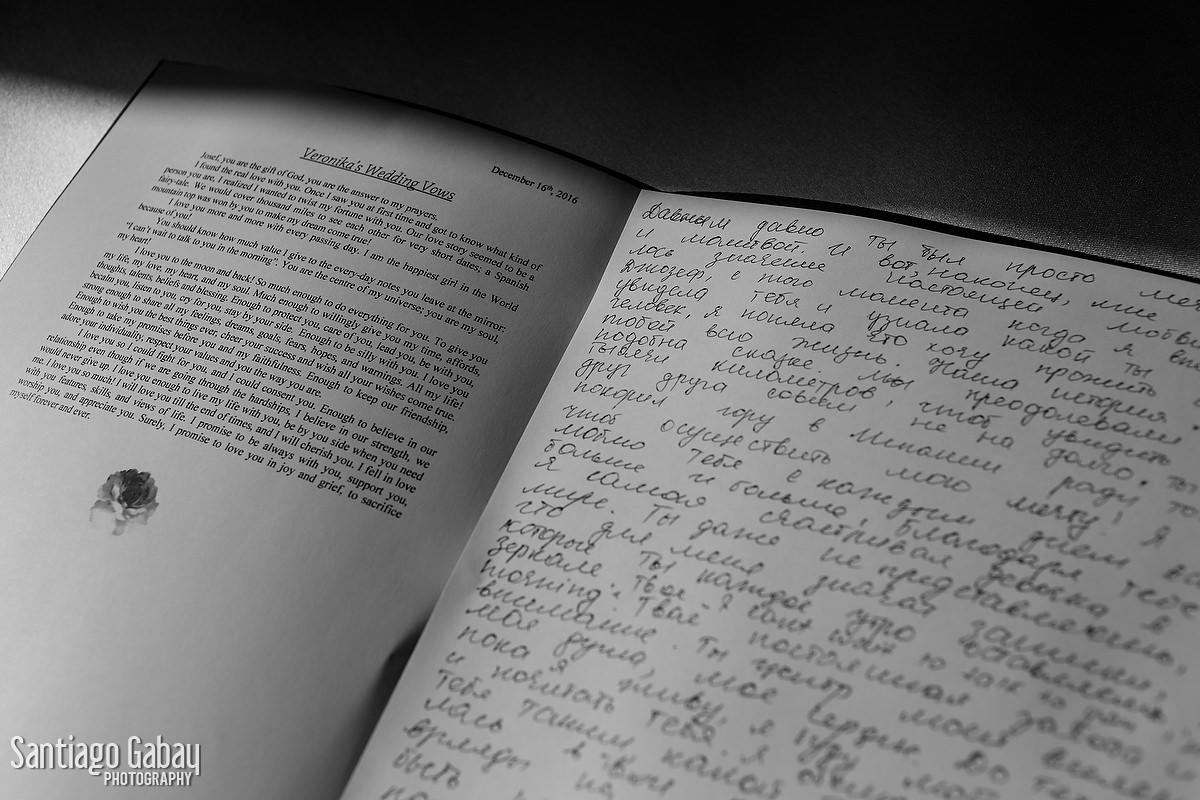 December 16th, 2016
Veronika's Wedding Vows
Josef, you are the gift of God, you are the answer to my prayers.
I found the real love with you. Once I saw you at first time and got to know what kind of
person you are, I realized I wanted to twist my fortune with you. Our love story seemed to be a
fairy-tale. We would cover thousand miles to see each other for very short dates; a Spanish
mountain top was won by you to make my dream come true!
I love you more and more with every passing day. I am the happiest girl in the World
because of you!
You should know how much value I give to the every-day notes you leave at the mirror:
"I can't wait to talk to you in the morning". You are the centre of my universe; you are my soul,
my heart!
I love you to the moon and back! So much enough to do everything for you. To give you
my life, my love, my heart, and my soul. Much enough to willingly give you my time, affords,
thoughts, talents, beliefs and blessing. Enough to protect you, care of you, lead you, be with you,
becalm you, listen to you, cry for you, stay by your side. Enough to be silly with you. I love you
strong enough to share all my feelings, dreams, goals, fears, hopes, and warnings. All my life!
Enough to wish you the best things ever, cheer your success and wish all your wishes come true.
Enough to take my promises before you and my faithfulness. Enough to keep our friendship,
adore your individually, respect your values and you the way you are.
I love you so I could fight for you, and I could consent you. Enough to believe in our
relationship even though if we are going through the hardships, I believe in our strength, we
would never give up. I love you enough to live my life with you, be by you side when you need
me. I love you so much! I will love you till the end of times, and I will cherish you. I fell in love
with you features, skills, and views of life. I promise to be always with you, support you,
worship you, and appreciate you. Surely, I promise to love you in joy and grief, to sacrifice
myself forever and ever.
Давным давно ты был просто
и молитвой. И вот, наконец, мне
лось значение настоящей любви
Джозеф, с того момента когда я
увидела тебя и узнала какой ты
человек, я поняла что хочу прожить
тобой всю жизнь. Наша история
подобна сказке. Мы преодолевали
тысячи километров, чтоб увидить
друг друга совсем не на долго. Ты
покорил гору в Испании ради
чтоб осуществить мою мечту! Я
люблю тебя с каждым днем
больше и больше, благодаря тебе
я самая счастливая девочка в
мире. Ты даже не представляешь,
что для меня значат записки,
которые ты каждое утро оставляешь
зеркале
morning.
внимание. Ты центр моей
моя душа, мое сердце. До
пока я живу, я буду
и почитать тебя. Я
тебя таким, какой
Santiago Gabay
PHOTOGRAPHY